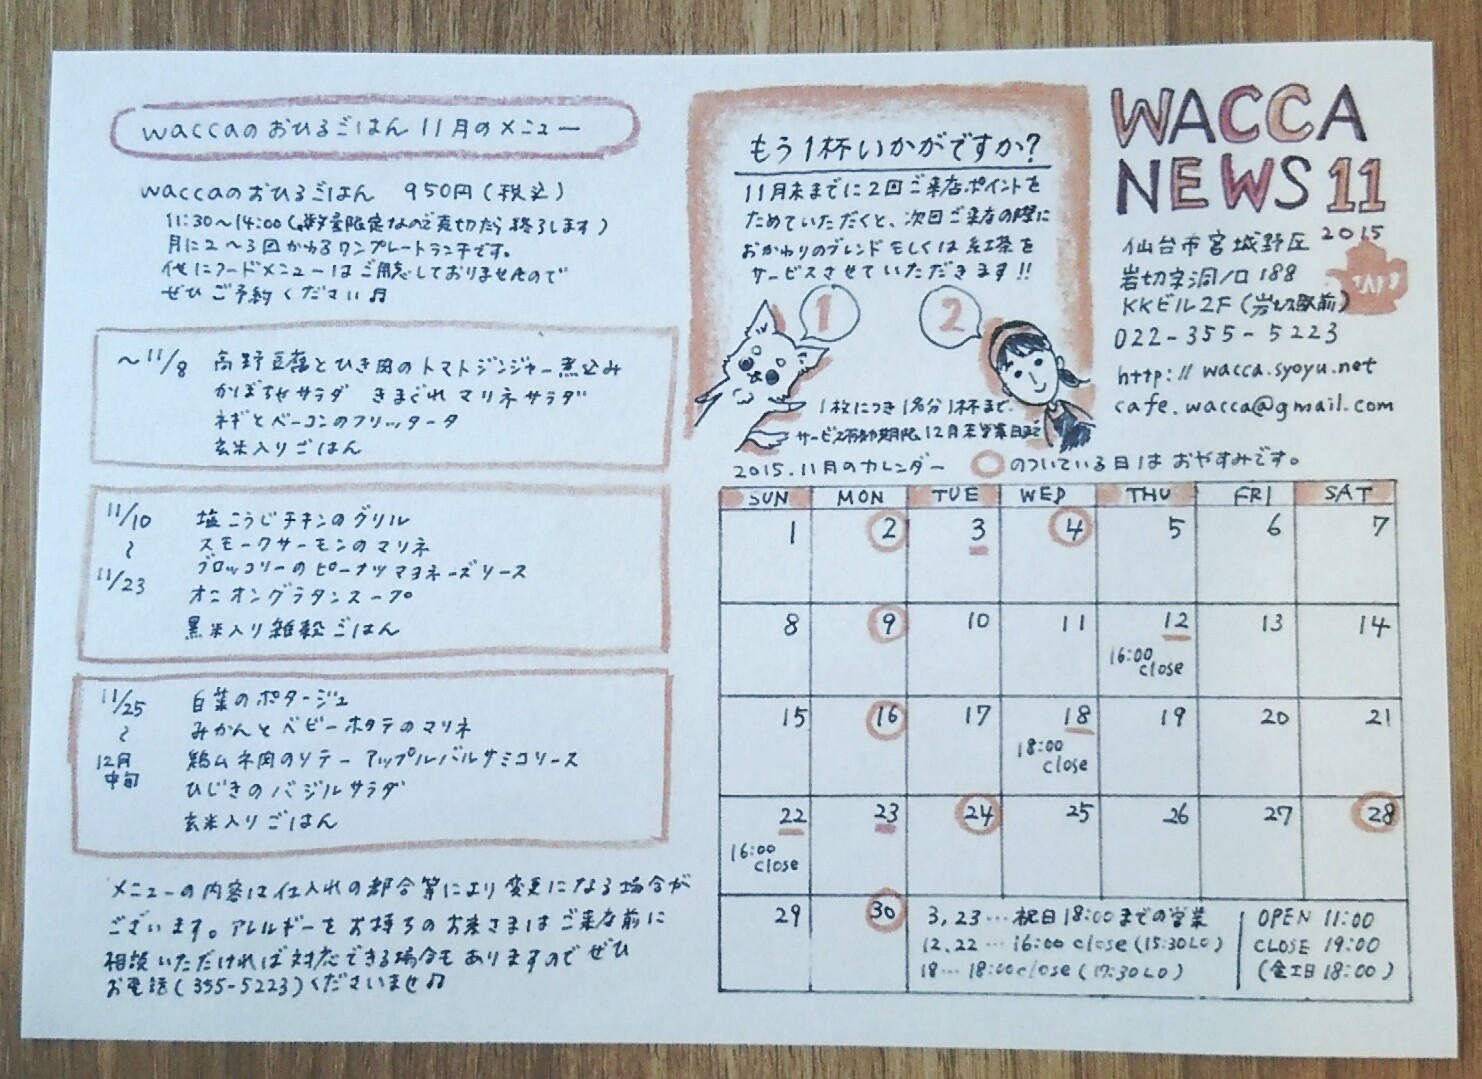 waccaのおひるごはん 11月のメニュー
waccaのおひるごはん 950円(税込)
11:30～14:00(※数量限定なので売切たら終了します)
月に2～3回かわるワンプレートランチです。
他にフードメニューはご用意しておりませんので
ぜひご予約ください♫
～11/8 高野豆腐とひき肉のトマトジンジャー煮込み
かぼちゃサラダ きまぐれマリネサラダ
ネギとベーコンのフリッター
玄米入りごはん
11/10～11/23
塩こうじチキンのグリル
スモークサーモンのマリネ
ブロッコリーのピーナツマヨネーズソース
オニオングラタンスープ
黒米入り雑穀ごはん
11/25～12月中旬
白菜のポタージュ
みかんとベビーホタテのマリネ
鶏ムネ肉のソテー アップルバルサミコソース
ひじきのバジルサラダ
玄米入りごはん
メニューの内容は仕入れの都合等により変更になる場合が
ございます。アレルギーをお持ちのお客さまはご来店前に
相談いただければ対応できる場合もありますのでぜひ
お電話(355-5223)くださいませ♫
もう1杯いかがですか?
11月末までに2回ご来店ポイントを
ためていただくと、次回ご来店の際に
おかわりのブレンドもしくは紅茶を
サービスさせていただきます!!
1 2
1枚につき1名分1杯まで。
サービス有効期限、12月末営業日まで
WACCA
NEWS 11
2015
仙台市宮城野区
岩切字洞ノ口188
KKビル2F(岩切駅前)
022-355-5223
http://wacca.syoyu.net
cafe.wacca@gmail.com
2015.11月のカレンダー ○のついている日はおやすみです。
SUN MON TUE WED THU FRI SAT
1 2 3 4 5 6 7
8 9 10 11 12 13 14
16:00 close
15 16 17 18 19 20 21
18:00 close
22 23 24 25 26 27 28
16:00 close
29 30
3,23…祝日18:00までの営業
12,22…16:00close(15:30LO)
18…18:00close(17:30LO)
OPEN 11:00
CLOSE 19:00
(金工日18:00)